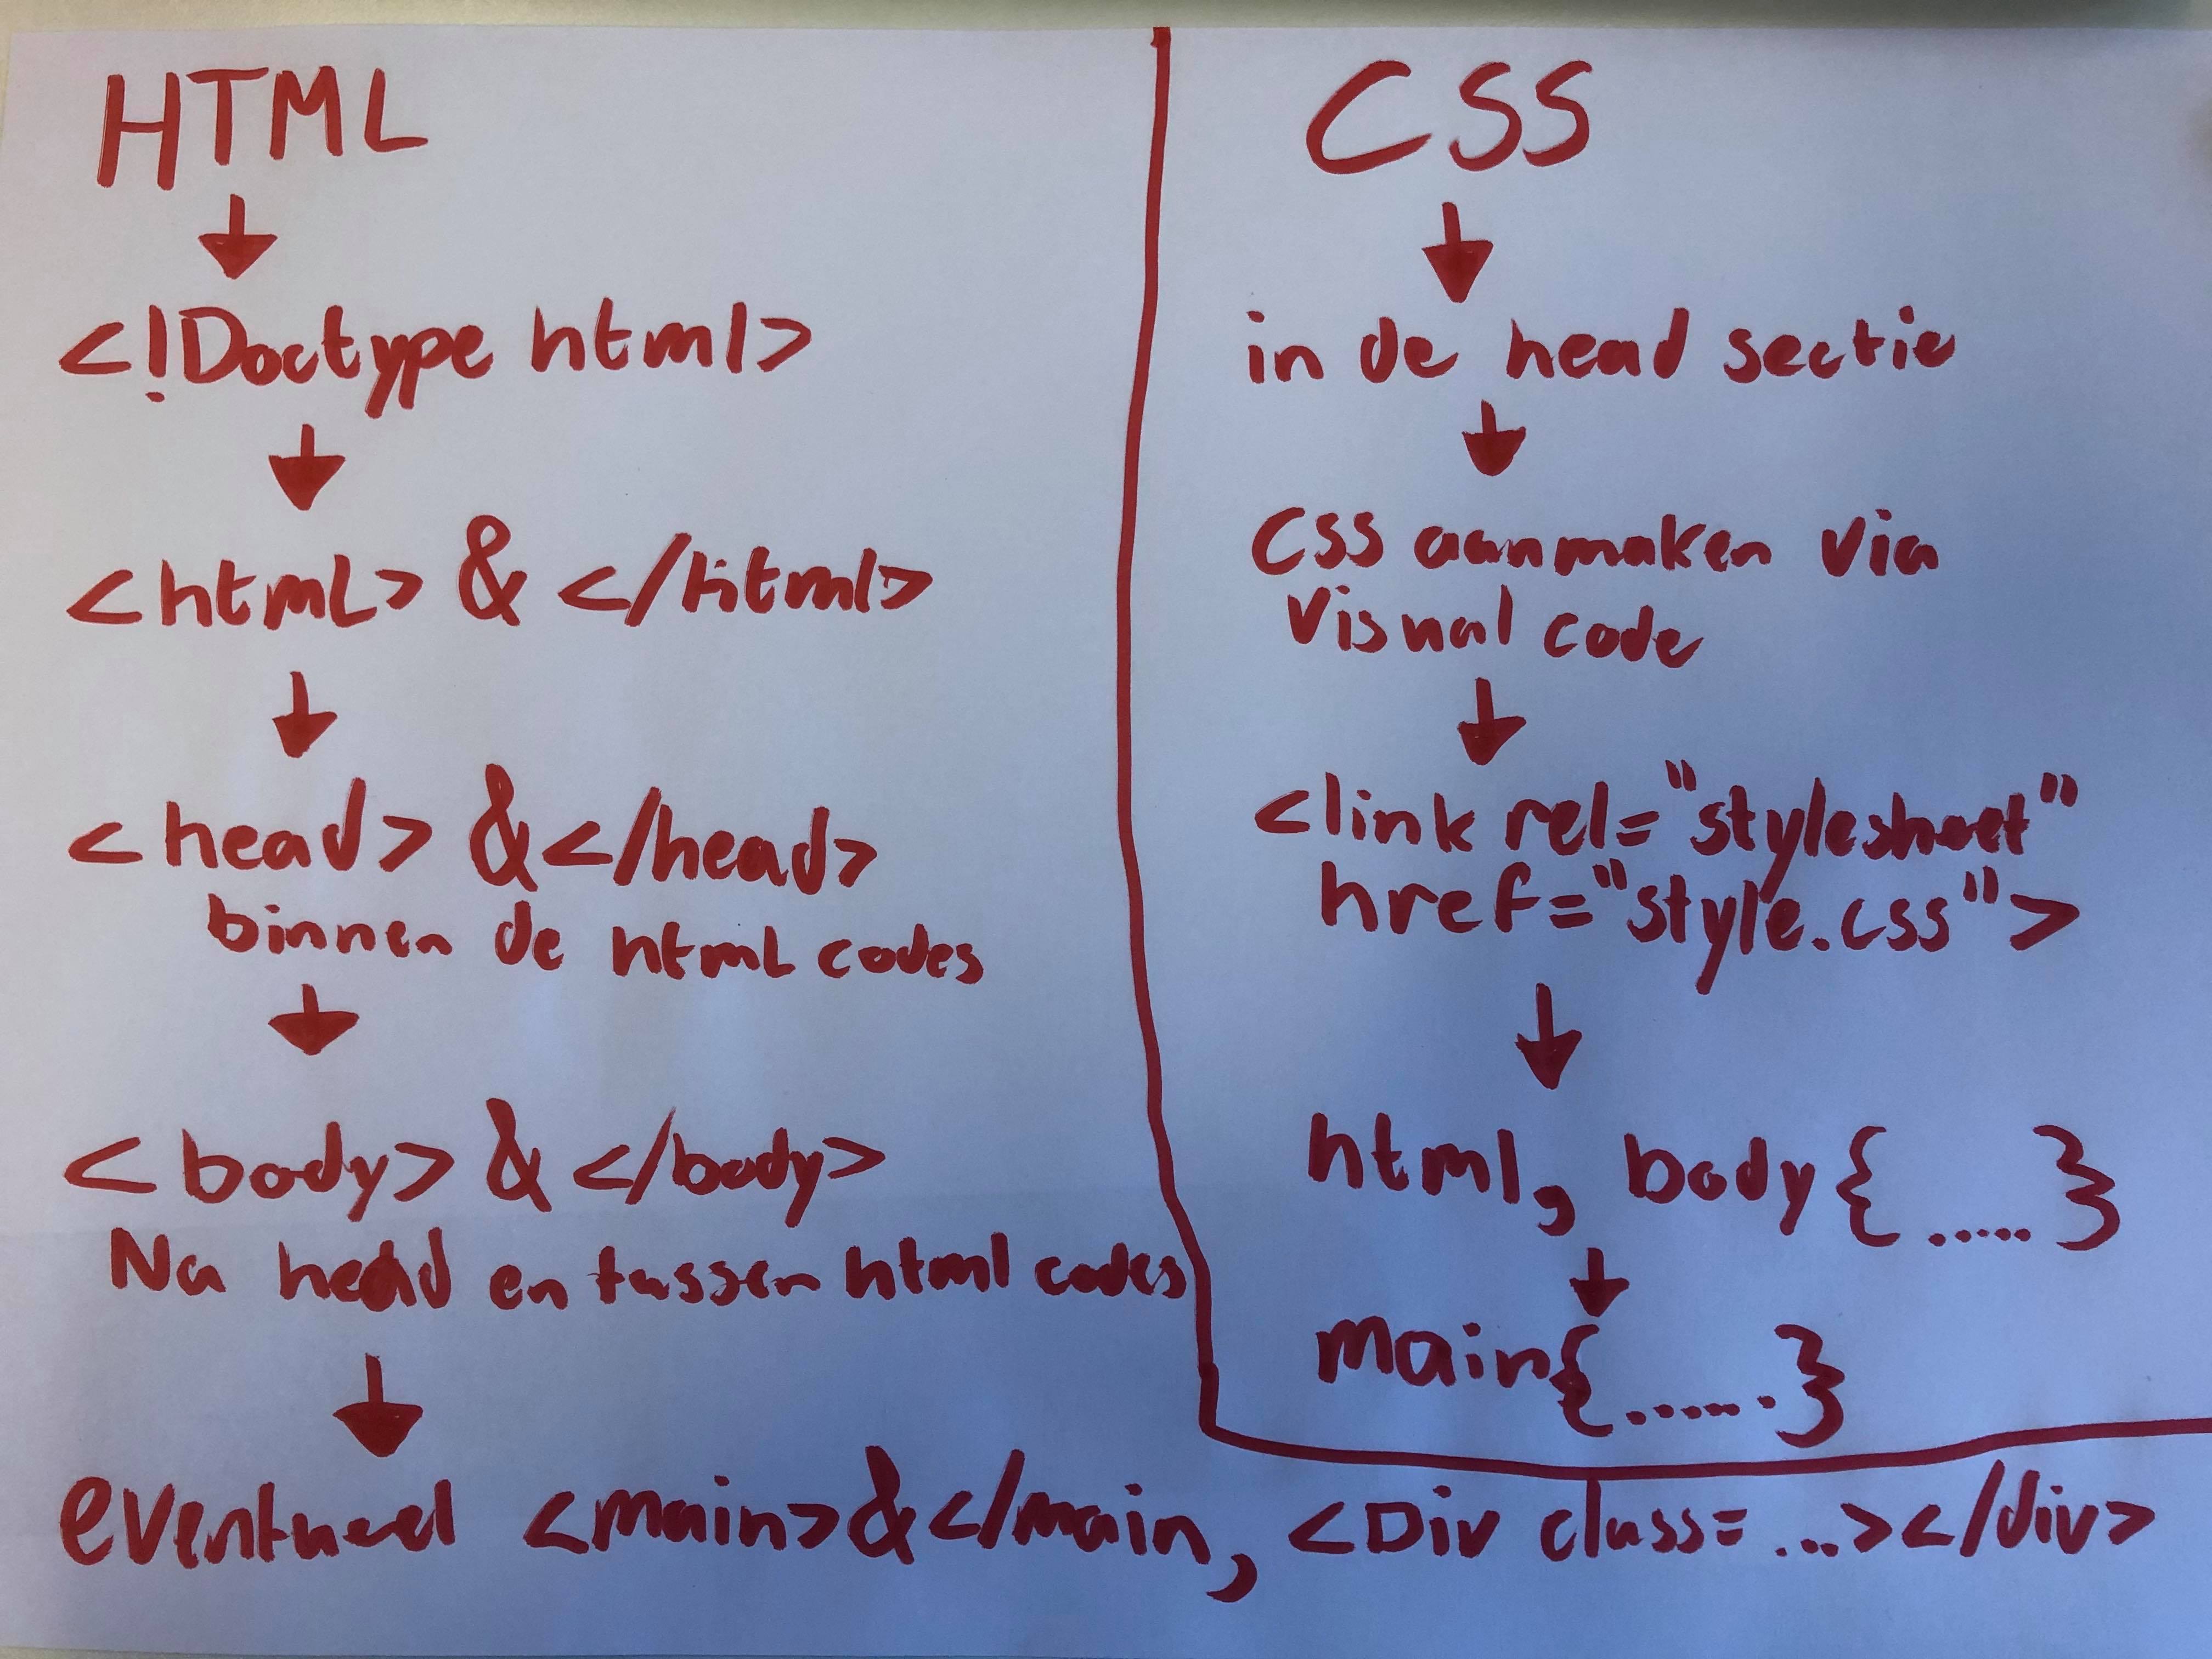 HTML
<!Doctype html>
<html> & </html>
<head> & </head>
binnen de html codes
<body> & </body>
Na head en tussen html codes
eventueel <main> & </main, <Div class= ...></div>
CSS
in de head sectie
CSS aanmaken via
Visual code
<link rel="stylesheet"
href="style.css">
html, body{ ..... }
main{ ...... }